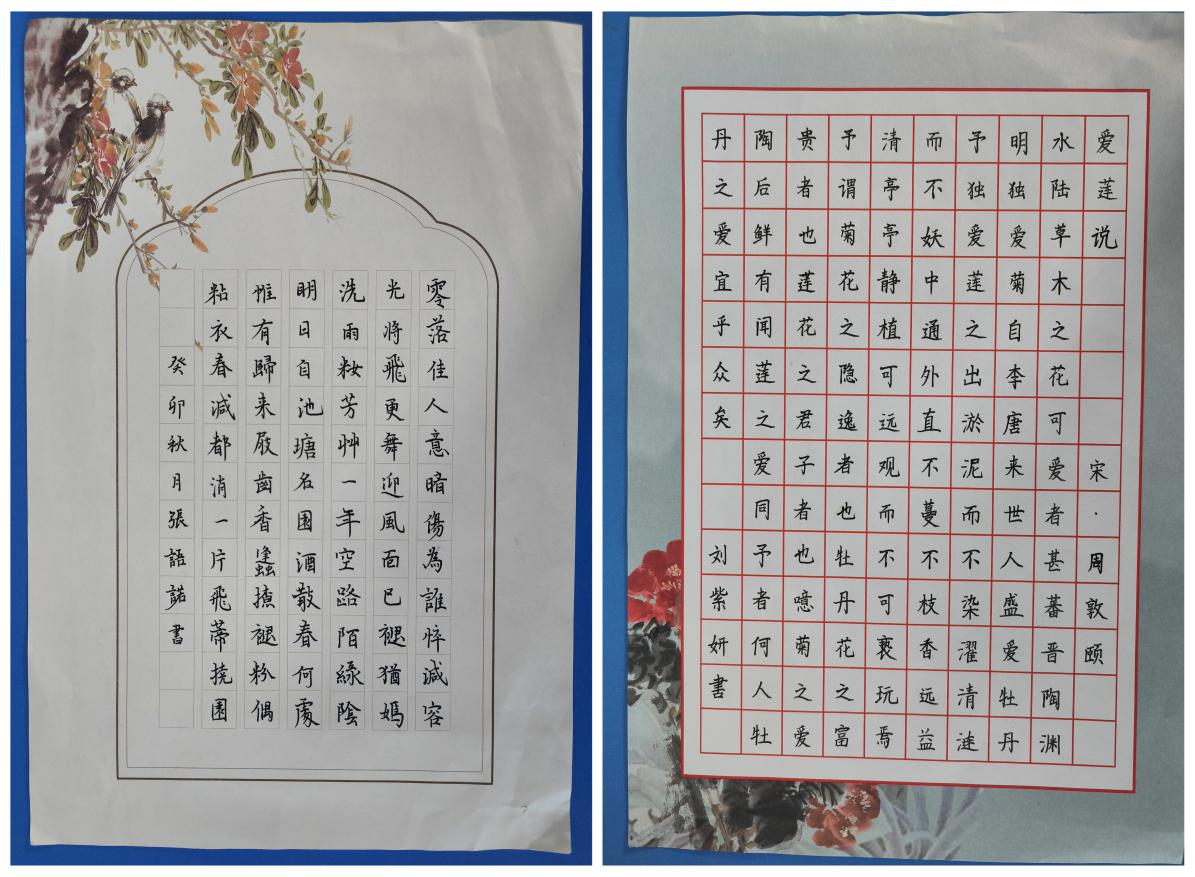 零落佳人意暗傷為誰悴減容
光將飛更舞迎風面已褪猶嫣
洗雨籹芳艸一年空路陌緑陰
明日自池塘名園酒散春何處
惟有歸来屐齒香蠭撩褪粉偶
粘衣春減都消一片飛蒂撓園
癸卯秋月張語諾書
爱莲说 宋·周敦颐
水陆草木之花可爱者甚蕃晋陶渊
明独爱菊自李唐来世人盛爱牡丹
予独爱莲之出淤泥而不染濯清涟
而不妖中通外直不蔓不枝香远益
清亭亭静植可远观而不可亵玩焉
予谓菊花之隐逸者也牡丹花之富
贵者也莲花之君子者也噫菊之爱
陶后鲜有闻莲之爱同予者何人牡
丹之爱宜乎众矣 刘紫妍書